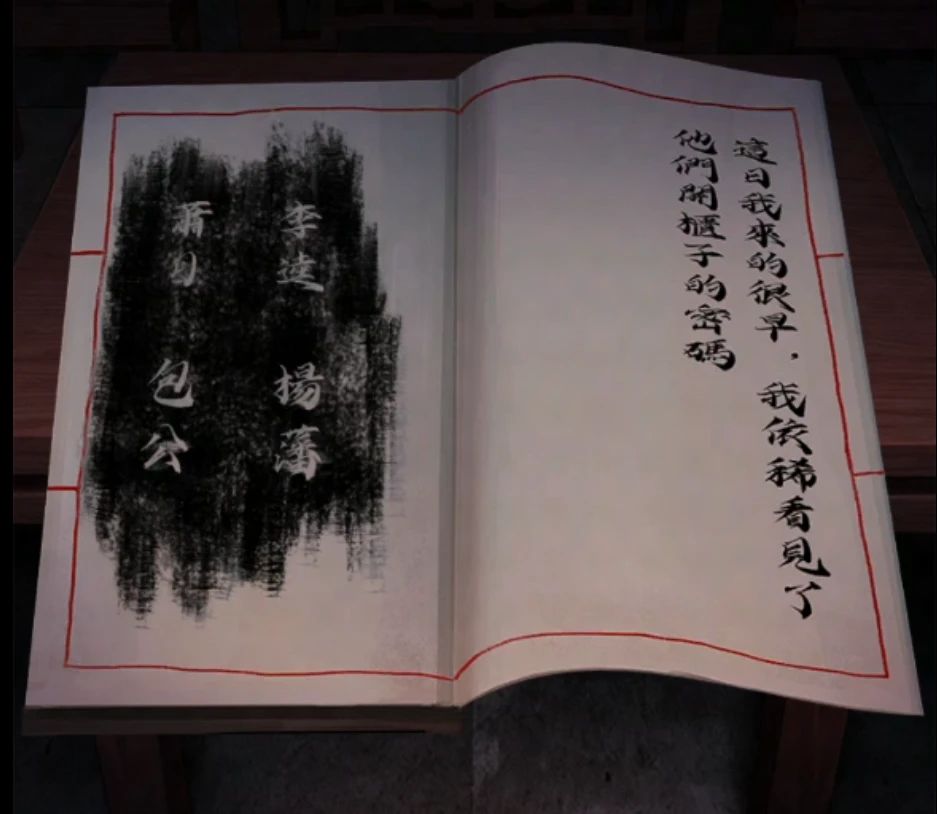 這日我來的很早，我依稀看見了
他們開櫃子的密碼
李逵 楊藩
包公